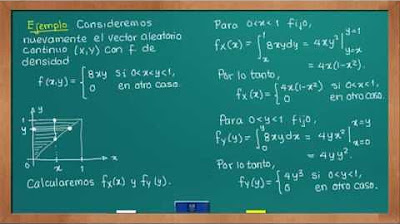 Ejemplo Consideremos
nuevamente el vector aleatorio
continuo (x,y) con f. de
densidad
f(x,y)= { 8xy si 0<x<y<1,
0 en otro caso.
y
1
y
0 x 1 x
Calcularemos fx(x) y fy(y).
Para 0<x<1 fijo,
fx(x)= ∫_x^1 8xydy = 4xy²|_{y=x}^{y=1}
= 4x(1-x²).
Por lo tanto,
fx(x)= { 4x(1-x²) si 0<x<1,
0 en otro caso.
Para 0<y<1 fijo,
fy(y)= ∫_0^y 8xydx = 4yx²|_{x=0}^{x=y}
= 4yy².
Por lo tanto,
fy(y)= { 4y³ si 0<y<1,
0 en otro caso.